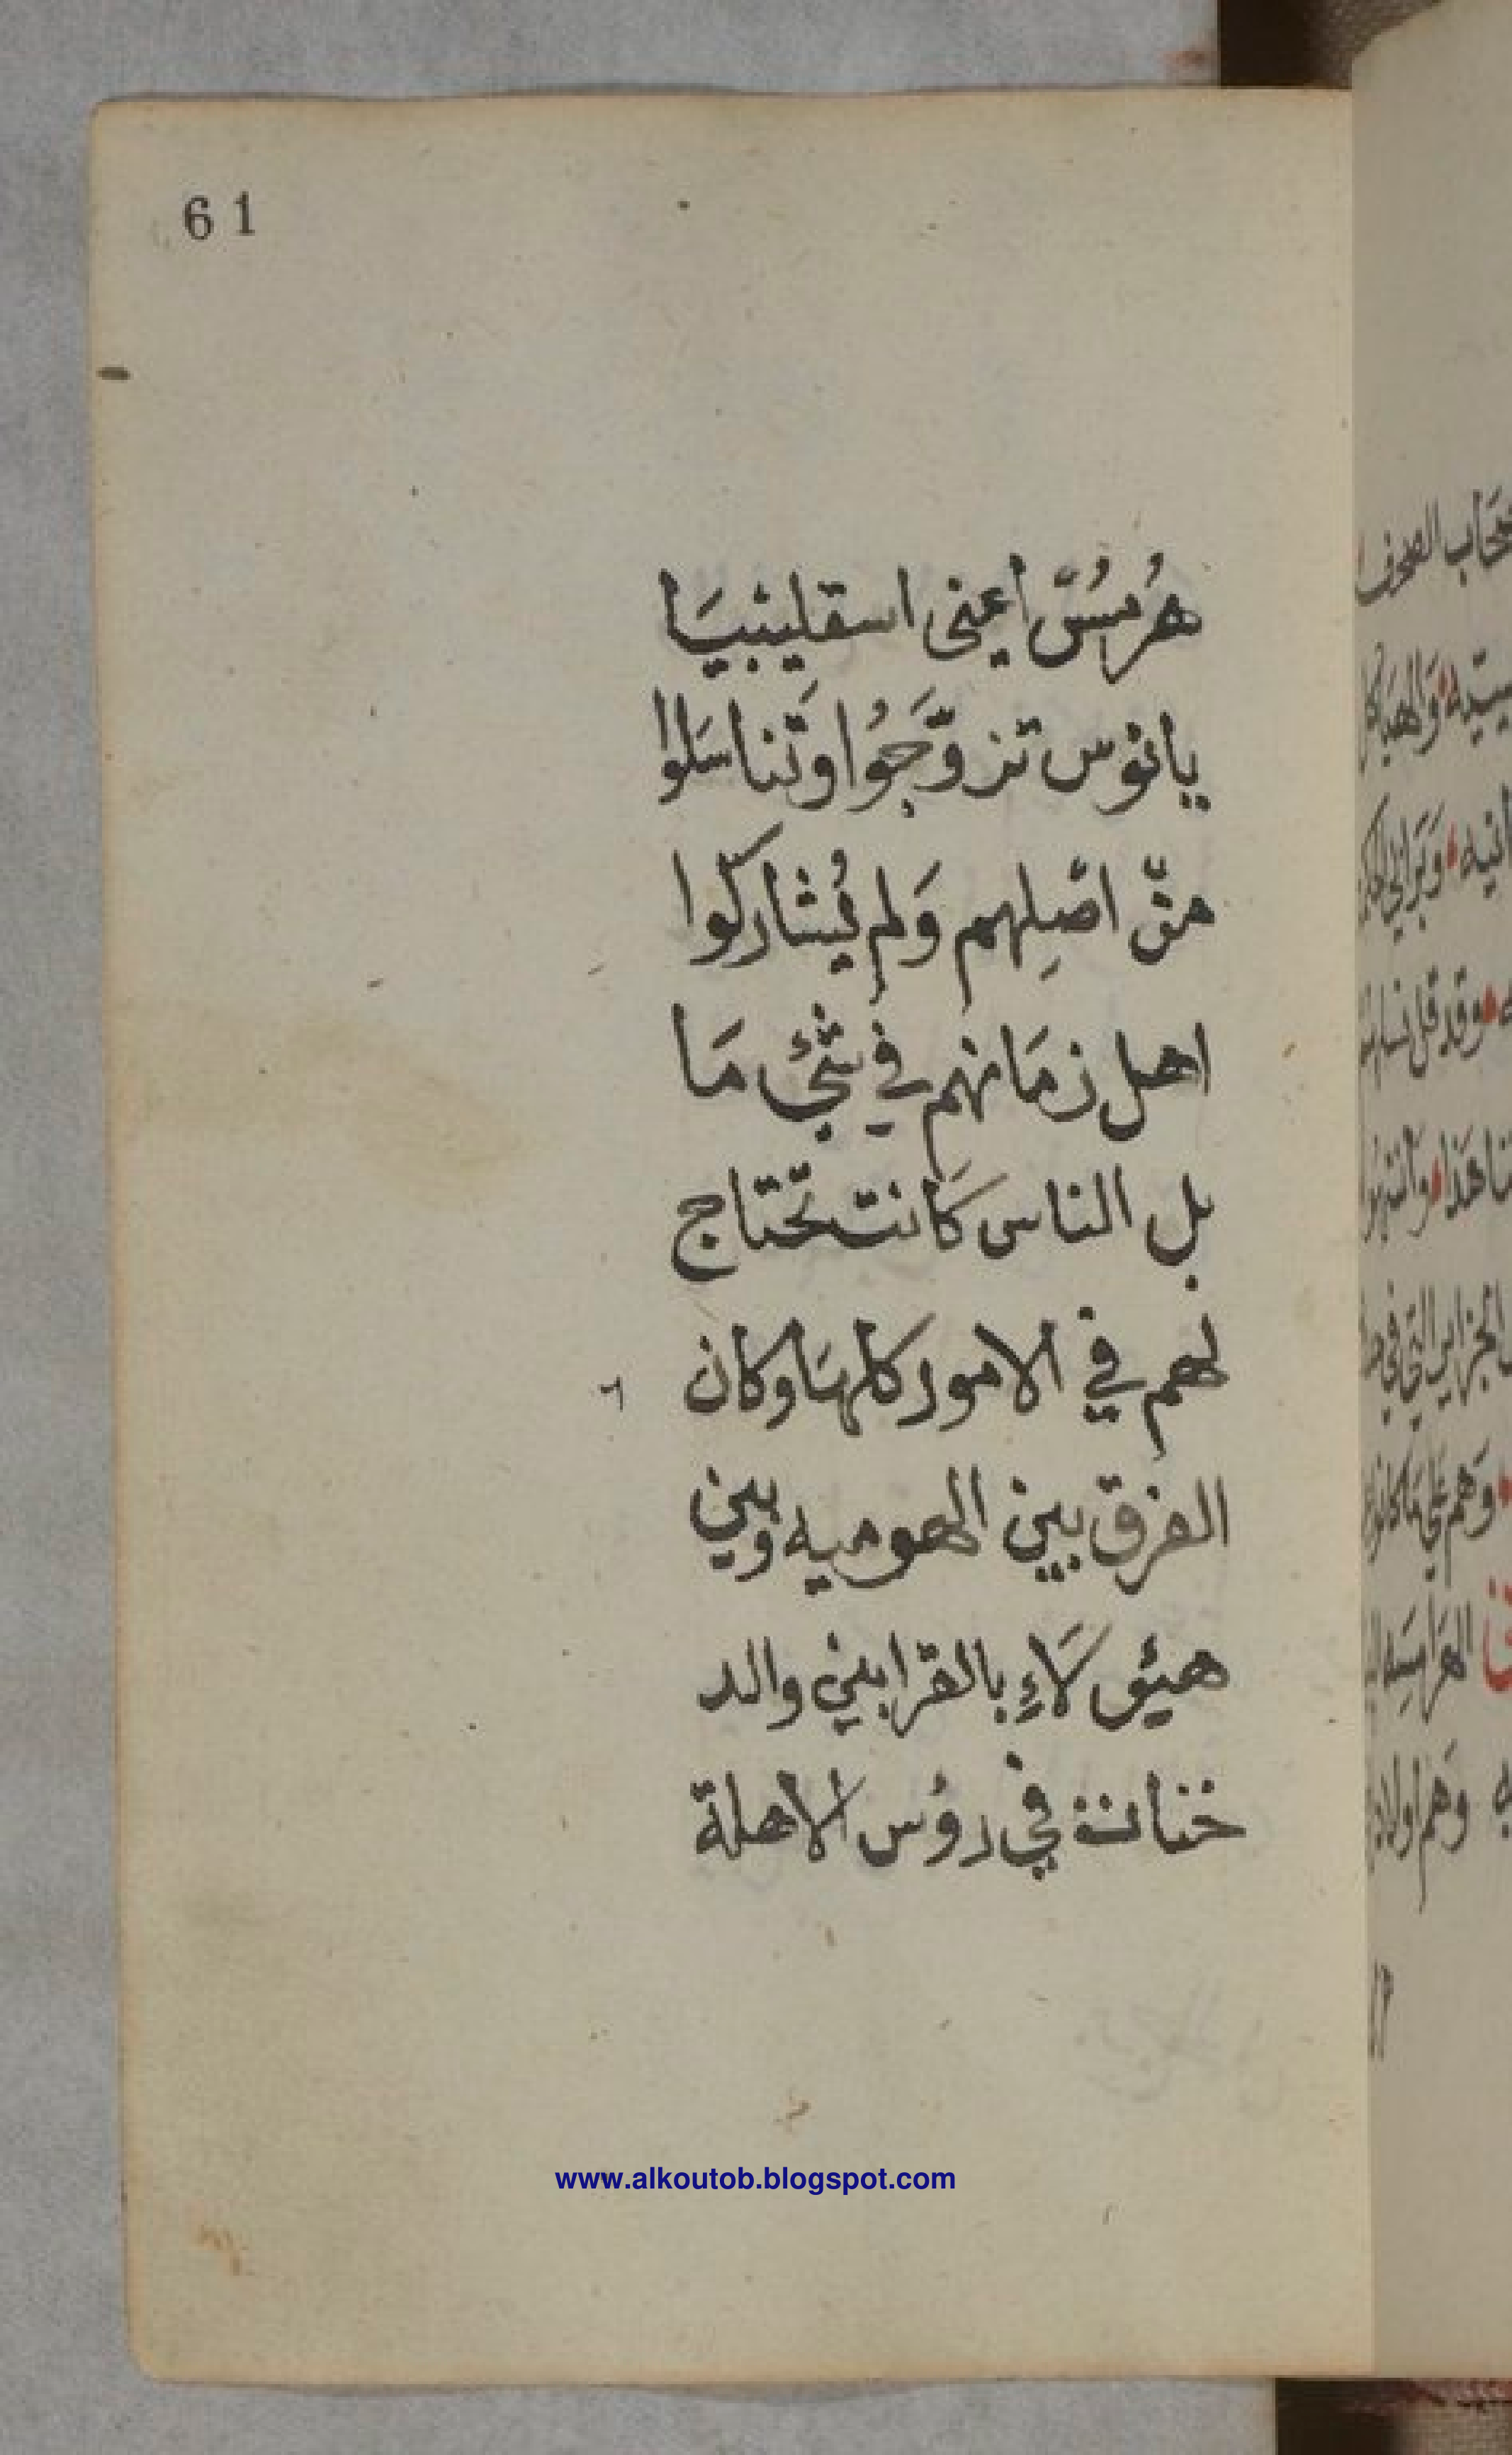 61
هُرمسُّ اعنى اسقليبيَا
يانوس تزوَّجَوُا وتَّناسَلوا
منّ اصْلِهم وَلم يُشَارِكوا
اهل زمَانهم في شَئٍ مَا
بل الناس كَانت تحتاج
لهم في الامور كلهَا وكان
الفرق بين الهوميه وبين
هيؤ لَاءِ بالقرابين والد
خنانة في رؤس الاهلة
www.alkoutob.blogspot.com